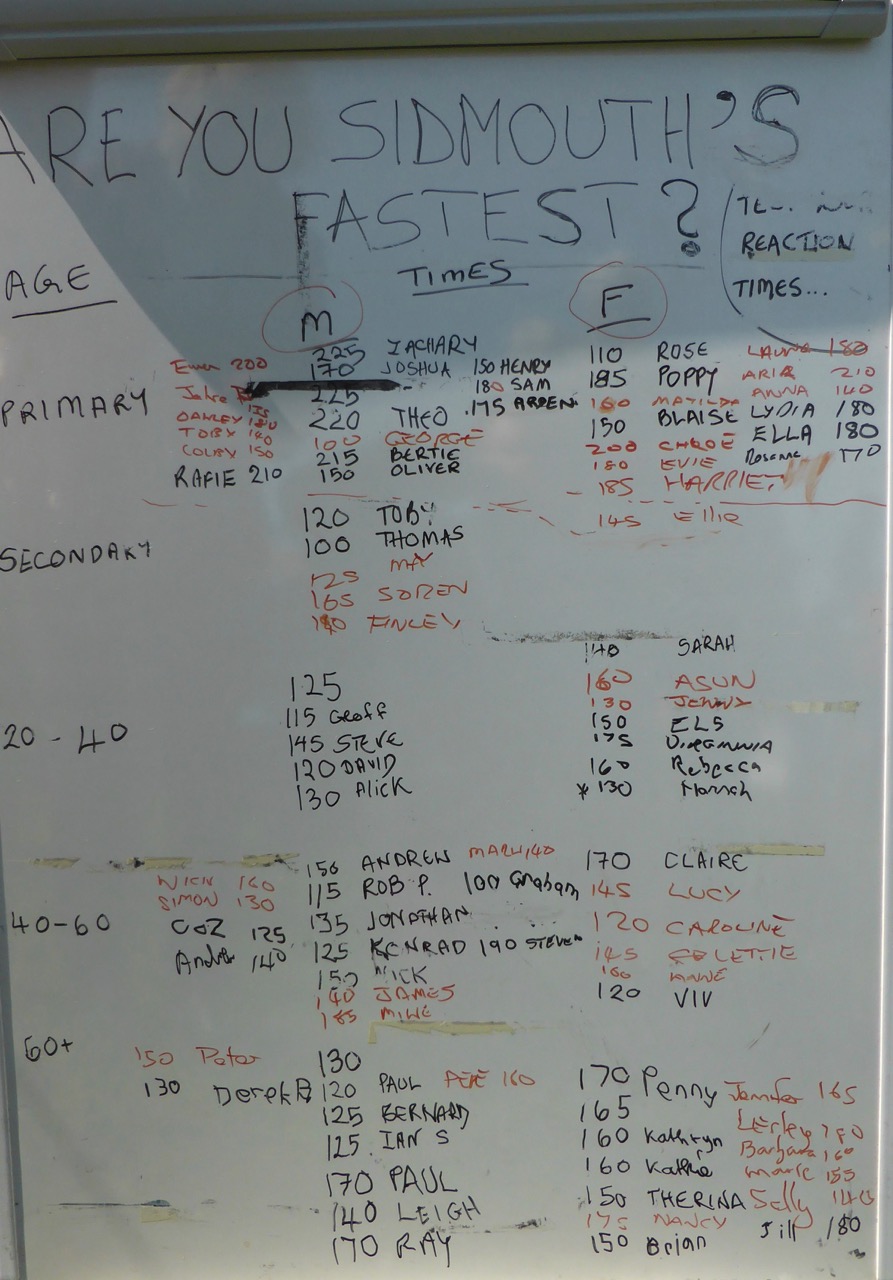 ARE YOU SIDMOUTH'S
FASTEST?
REACTION
TIMES...
AGE
TIMES
M
F
PRIMARY
225 ZACHARY
Ewan 200 170 JOSHUA 150 HENRY
225 180 SAM
OAKLEY 220 THEO .175 ARDEN
TOBY 140 100 GEORGE
COLBY 150 215 BERTIE
RAFIE 210 150 OLIVER
110 ROSE LAURA 150
185 POPPY ARIA 210
160 MATILDA ANNA 140
150 BLAISE LYDIA 180
200 CHLOE ELLA 180
180 EVIE 170
185 HARRIET
SECONDARY
120 TOBY
100 THOMAS
125 MAY
165 SOREN
FINLEY
145 Ellie
20 - 40
125
115 Geoff
145 STEVE
120 DAVID
130 Alick
140 SARAH
160 ASUN
130 JENNY
150 ELS
175
160 Rebecca
* 130 Hannah
40-60
150 ANDREW 140
NICK 160
115 ROB P. 100 Graham
SIMON 130
135 JONATHAN
COZ 125
125 KONRAD 190 STEVEN
Andre 140
150 NICK
140 JAMES
185 MIKE
170 CLAIRE
145 LUCY
120 CAROLINE
145 COLETTE
160 ANNE
120 VIV
60+
150 Peter 130
130 Derek B 120 PAUL PETE 160
125 BERNARD
125 IAN S
170 PAUL
140 LEIGH
170 RAY
170 Penny Jennifer 165
165 Lesley
160 Kathryn Barbara 160
160 Kathie 155
150 THERINA Sally 140
175 NANCY Jill 180
150 Brian